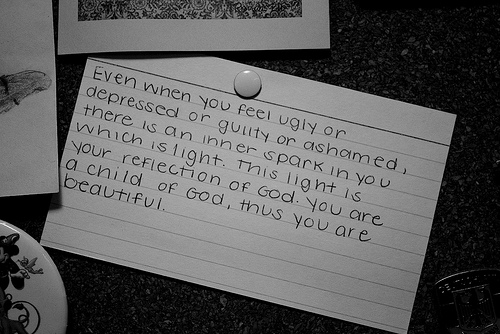 Even when you feel ugly or
depressed or guilty or ashamed,
there is an inner spark in you
which is light. This light is
your reflection of God. You are
a child of God, thus you are
beautiful.